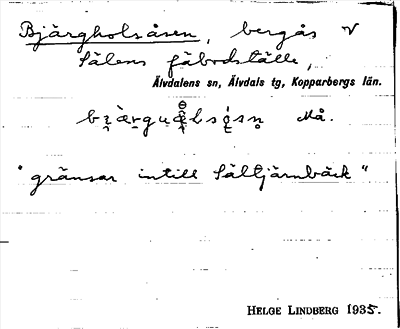 Bjärgholsåsen, bergås V
Sälens fäbodställe,
Älvdalens sn, Älvdals tg, Kopparbergs län.
Må.
"gränsar intill Sältjärnbäck"
HELGE LINDBERG 1935.